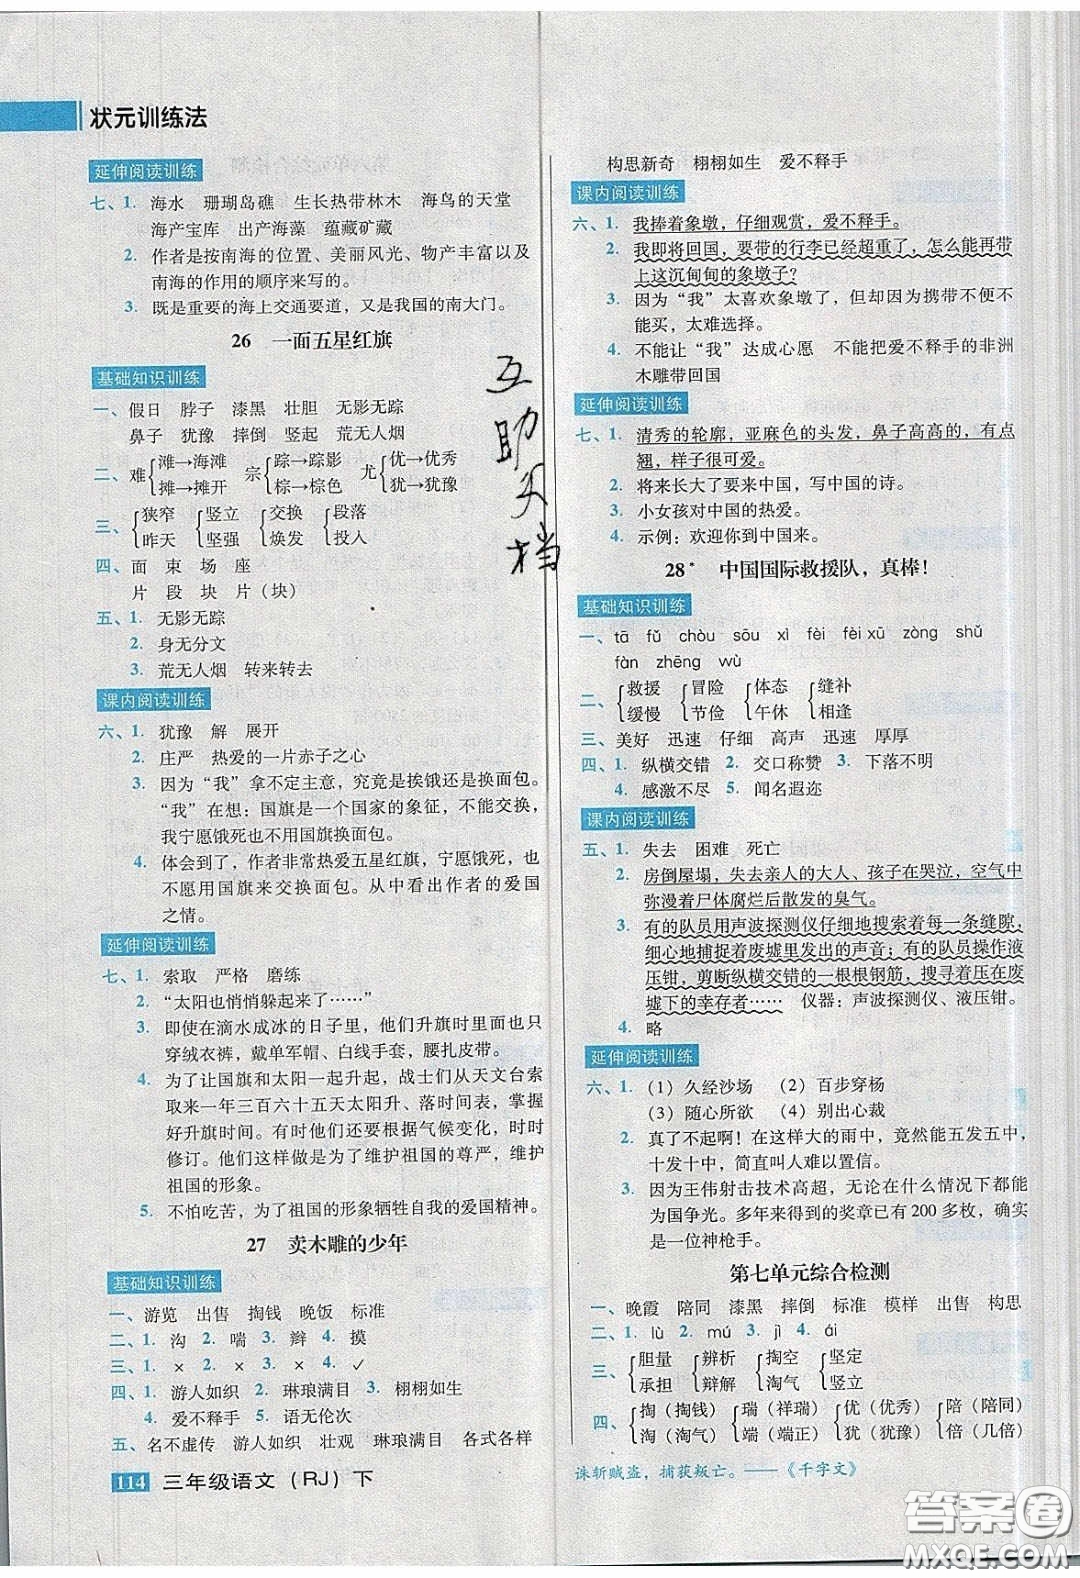 状元训练法
延伸阅读训练
七、1. 海水 珊瑚岛礁 生长热带林木 海鸟的天堂
海产宝库 出产海藻 蕴藏矿藏
2. 作者是按南海的位置、美丽风光、物产丰富以及
南海的作用的顺序来写的。
3. 既是重要的海上交通要道，又是我国的南大门。
26 一面五星红旗
基础知识训练
一、假日 脖子 漆黑 壮胆 无影无踪
鼻子 犹豫 摔倒 竖起 荒无人烟
二、难{滩→海滩 宗{踪→踪影 尤{优→优秀
摊→摊开 棕→棕色 犹→犹豫
三、{狭窄 {竖立 {交换 {段落
昨天 坚强 焕发 投入
四、面 束 场 座
片 段 块 片（块）
五、1. 无影无踪
2. 身无分文
3. 荒无人烟 转来转去
课内阅读训练
六、1. 犹豫 解 展开
2. 庄严 热爱的一片赤子之心
3. 因为“我”拿不定主意，究竟是挨饿还是换面包。
“我”在想：国旗是一个国家的象征，不能交换，
我宁愿饿死也不用国旗换面包。
4. 体会到了，作者非常热爱五星红旗，宁愿饿死，也
不愿用国旗来交换面包。从中看出作者的爱国
之情。
延伸阅读训练
七、1. 索取 严格 磨练
2. “太阳也悄悄躲起来了……”
3. 即使在滴水成冰的日子里，他们升旗时里面也只
穿绒衣裤，戴单军帽、白线手套，腰扎皮带。
4. 为了让国旗和太阳一起升起，战士们从天文台索
取来一年三百六十五天太阳升、落时间表，掌握
好升旗时间。有时他们还要根据气候变化，时时
修订。他们这样做是为了维护祖国的尊严，维护
祖国的形象。
5. 不怕吃苦，为了祖国的形象牺牲自我的爱国精神。
27 卖木雕的少年
基础知识训练
一、游览 出售 掏钱 晚饭 标准
二、1. 沟 2. 喘 3. 辩 4. 摸
三、1. × 2. × 3. × 4. ✓
四、1. 游人如织 2. 琳琅满目 3. 栩栩如生
4. 爱不释手 5. 语无伦次
五、名不虚传 游人如织 壮观 琳琅满目 各式各样
114 三年级语文（RJ）下
互
助
文
档
构思新奇 栩栩如生 爱不释手
课内阅读训练
六、1. 我捧着象墩，仔细观赏，爱不释手。
2. 我即将回国，要带的行李已经超重了，怎么能再带
上这沉甸甸的象墩子？
3. 因为“我”太喜欢象墩了，但却因携带不便不
能买，太难选择。
4. 不能让“我”达成心愿 不能把爱不释手的非洲
木雕带回国
延伸阅读训练
七、1. 清秀的轮廓，亚麻色的头发，鼻子高高的，有点
翘，样子很可爱。
2. 将来长大了要来中国，写中国的诗。
3. 小女孩对中国的热爱。
4. 示例：欢迎你到中国来。
28* 中国国际救援队，真棒！
基础知识训练
一、tā fǔ chòu sōu xì fèi fèi xū zòng shǔ
fàn zhēng wù
二、{救援 {冒险 {体态 {缝补
缓慢 节俭 午休 相逢
三、美好 迅速 仔细 高声 迅速 厚厚
四、1. 纵横交错 2. 交口称赞 3. 下落不明
4. 感激不尽 5. 闻名遐迩
课内阅读训练
五、1. 失去 困难 死亡
2. 房倒屋塌，失去亲人的大人、孩子在哭泣，空气中
弥漫着尸体腐烂后散发的臭气。
3. 有的队员用声波探测仪仔细地搜索着每一条缝隙，
细心地捕捉着废墟里发出的声音；有的队员操作液
压钳，剪断纵横交错的一根根钢筋，搜寻着压在废
墟下的幸存者…… 仪器：声波探测仪、液压钳。
4. 略
延伸阅读训练
六、1. （1）久经沙场 （2）百步穿杨
（3）随心所欲 （4）别出心裁
2. 真了不起啊！在这样大的雨中，竟然能五发五中，
十发十中，简直叫人难以置信。
3. 因为王伟射击技术高超，无论在什么情况下都能
为国争光。多年来得到的奖章已有 200 多枚，确实
是一位神枪手。
第七单元综合检测
一、晚霞 陪同 漆黑 摔倒 标准 模样 出售 构思
二、1. lù 2. mú 3. jì 4. ái
三、{胆量 {辨析 {掏空 {坚定
承担 辩解 淘气 竖立
四、{掏（掏钱） {瑞（祥瑞） {优（优秀） {陪（陪同）
淘（淘气） 端（端正） 犹（犹豫） 倍（几倍）
诛斩贼盗，捕获叛亡。——《千字文》
答案圈
MXQE.COM